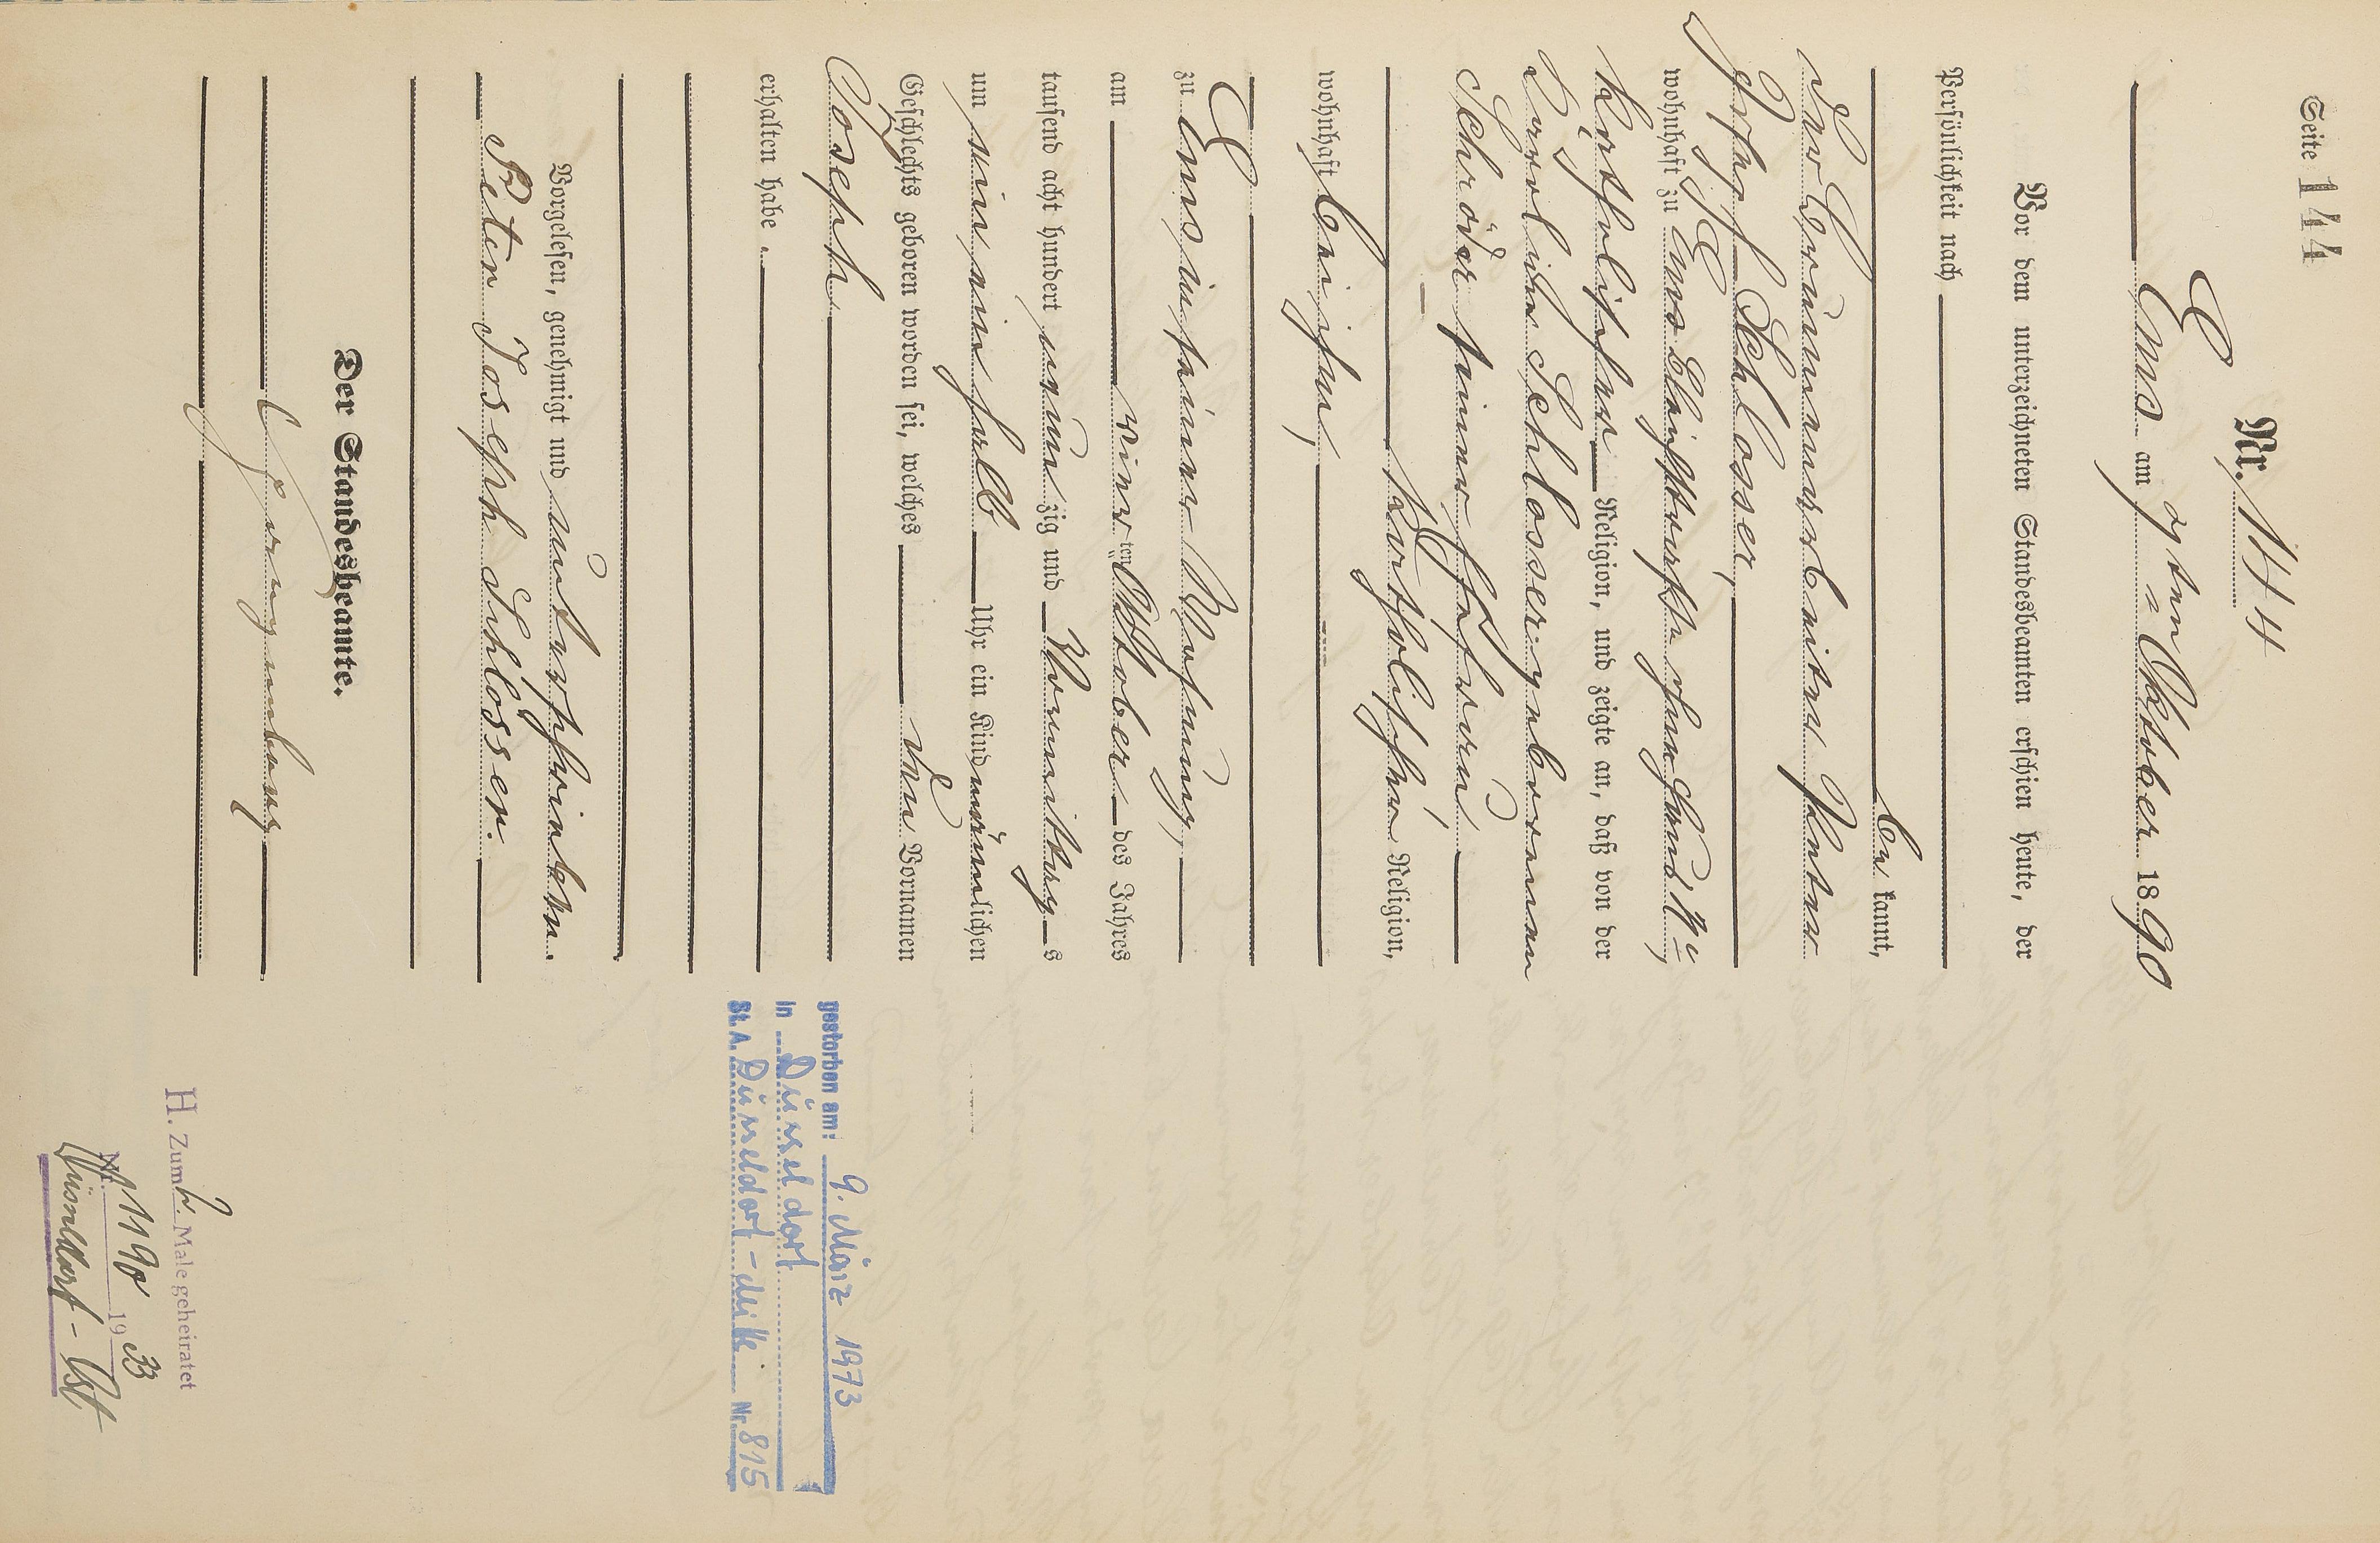 Seite 144
Nr. 144
Ems am 9ten Oktober 1890
Vor dem unterzeichneten Standesbeamten erschien heute, der
Persönlichkeit nach
be kannt,
der Brunnenarbeiter Peter
Joseph Schlosser,
wohnhaft zu Ems
katholischer Religion, und zeigte an, daß von der
Schlosser geborenen
Schröder seiner Ehefrau
katholischer Religion,
wohnhaft bei ihm,
zu Ems in seiner Wohnung,
am vierten Oktober des Jahres
tausend acht hundert neun zig und Vormittags
um ein ein halb Uhr ein Kind männlichen
Geschlechts geboren worden sei, welches den Vornamen
Joseph
erhalten habe.
Vorgelesen, genehmigt und unterschrieben.
Peter Joseph Schlosser.
Der Standesbeamte.
gestorben am: 9. März 1973
in Düsseldorf
St. A. Düsseldorf-Mitte Nr. 815
H. Zum 2. Male geheiratet
Nr. 1190 1933
Düsseldorf-Ost